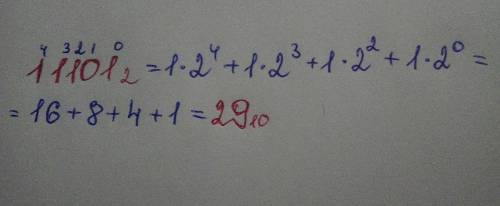 4 3 2 1 0
11101₂ = 1·2⁴ + 1·2³ + 1·2² + 1·2⁰ =
= 16 + 8 + 4 + 1 = 29₁₀